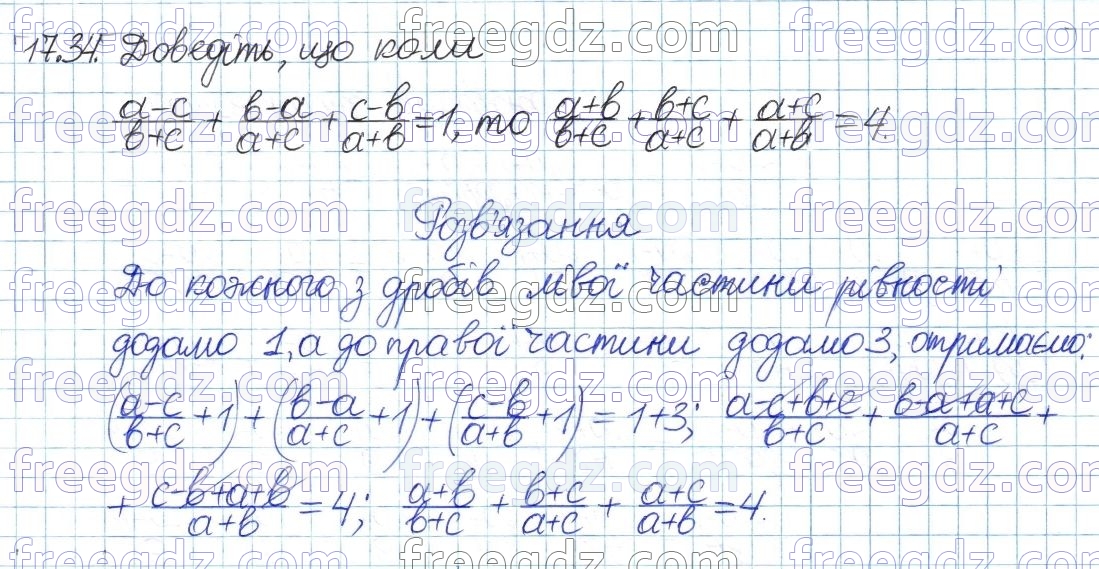 17.34. Доведіть, що коли
(a-c)/(b+c) + (b-a)/(a+c) + (c-b)/(a+b) = 1, то (a+b)/(b+c) + (b+c)/(a+c) + (a+c)/(a+b) = 4.
Розв'язання
До кожного з дробів лівої частини рівності
додамо 1, а до правої частини додамо 3, отримаємо:
((a-c)/(b+c) + 1) + ((b-a)/(a+c) + 1) + ((c-b)/(a+b) + 1) = 1+3; (a-c+b+c)/(b+c) + (b-a+a+c)/(a+c) +
+ (c-b+a+b)/(a+b) = 4; (a+b)/(b+c) + (b+c)/(a+c) + (a+c)/(a+b) = 4.
freegdz.com